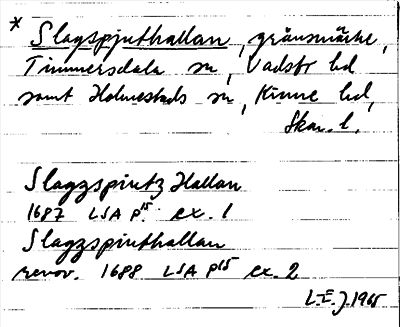 * Slagspjuthallan, gränsmärke,
Timmersdala sn, Vadsbo hd
samt Holmestads sn, Kinne hd,
Skar. l.
Slagzspiutz Hallan
1687 LSA P15 ex. 1
Slagzspiuthallan
renov. 1688 LSA P15 ex. 2
L.E.J. 1965